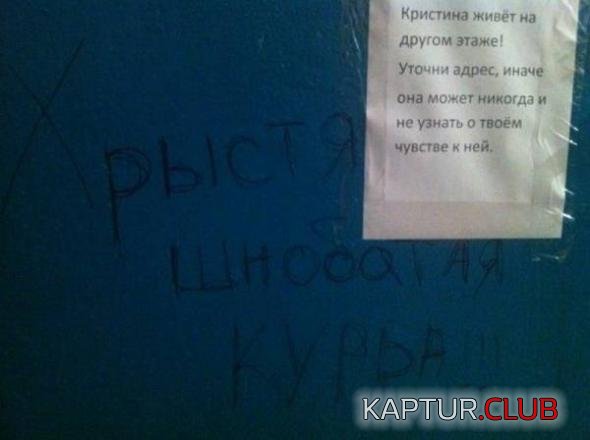 Кристина живёт на
другом этаже!
Уточни адрес, иначе
она может никогда и
не узнать о твоём
чувстве к ней.
Хрыстя
шнобатая
KAPTUR.CLUB